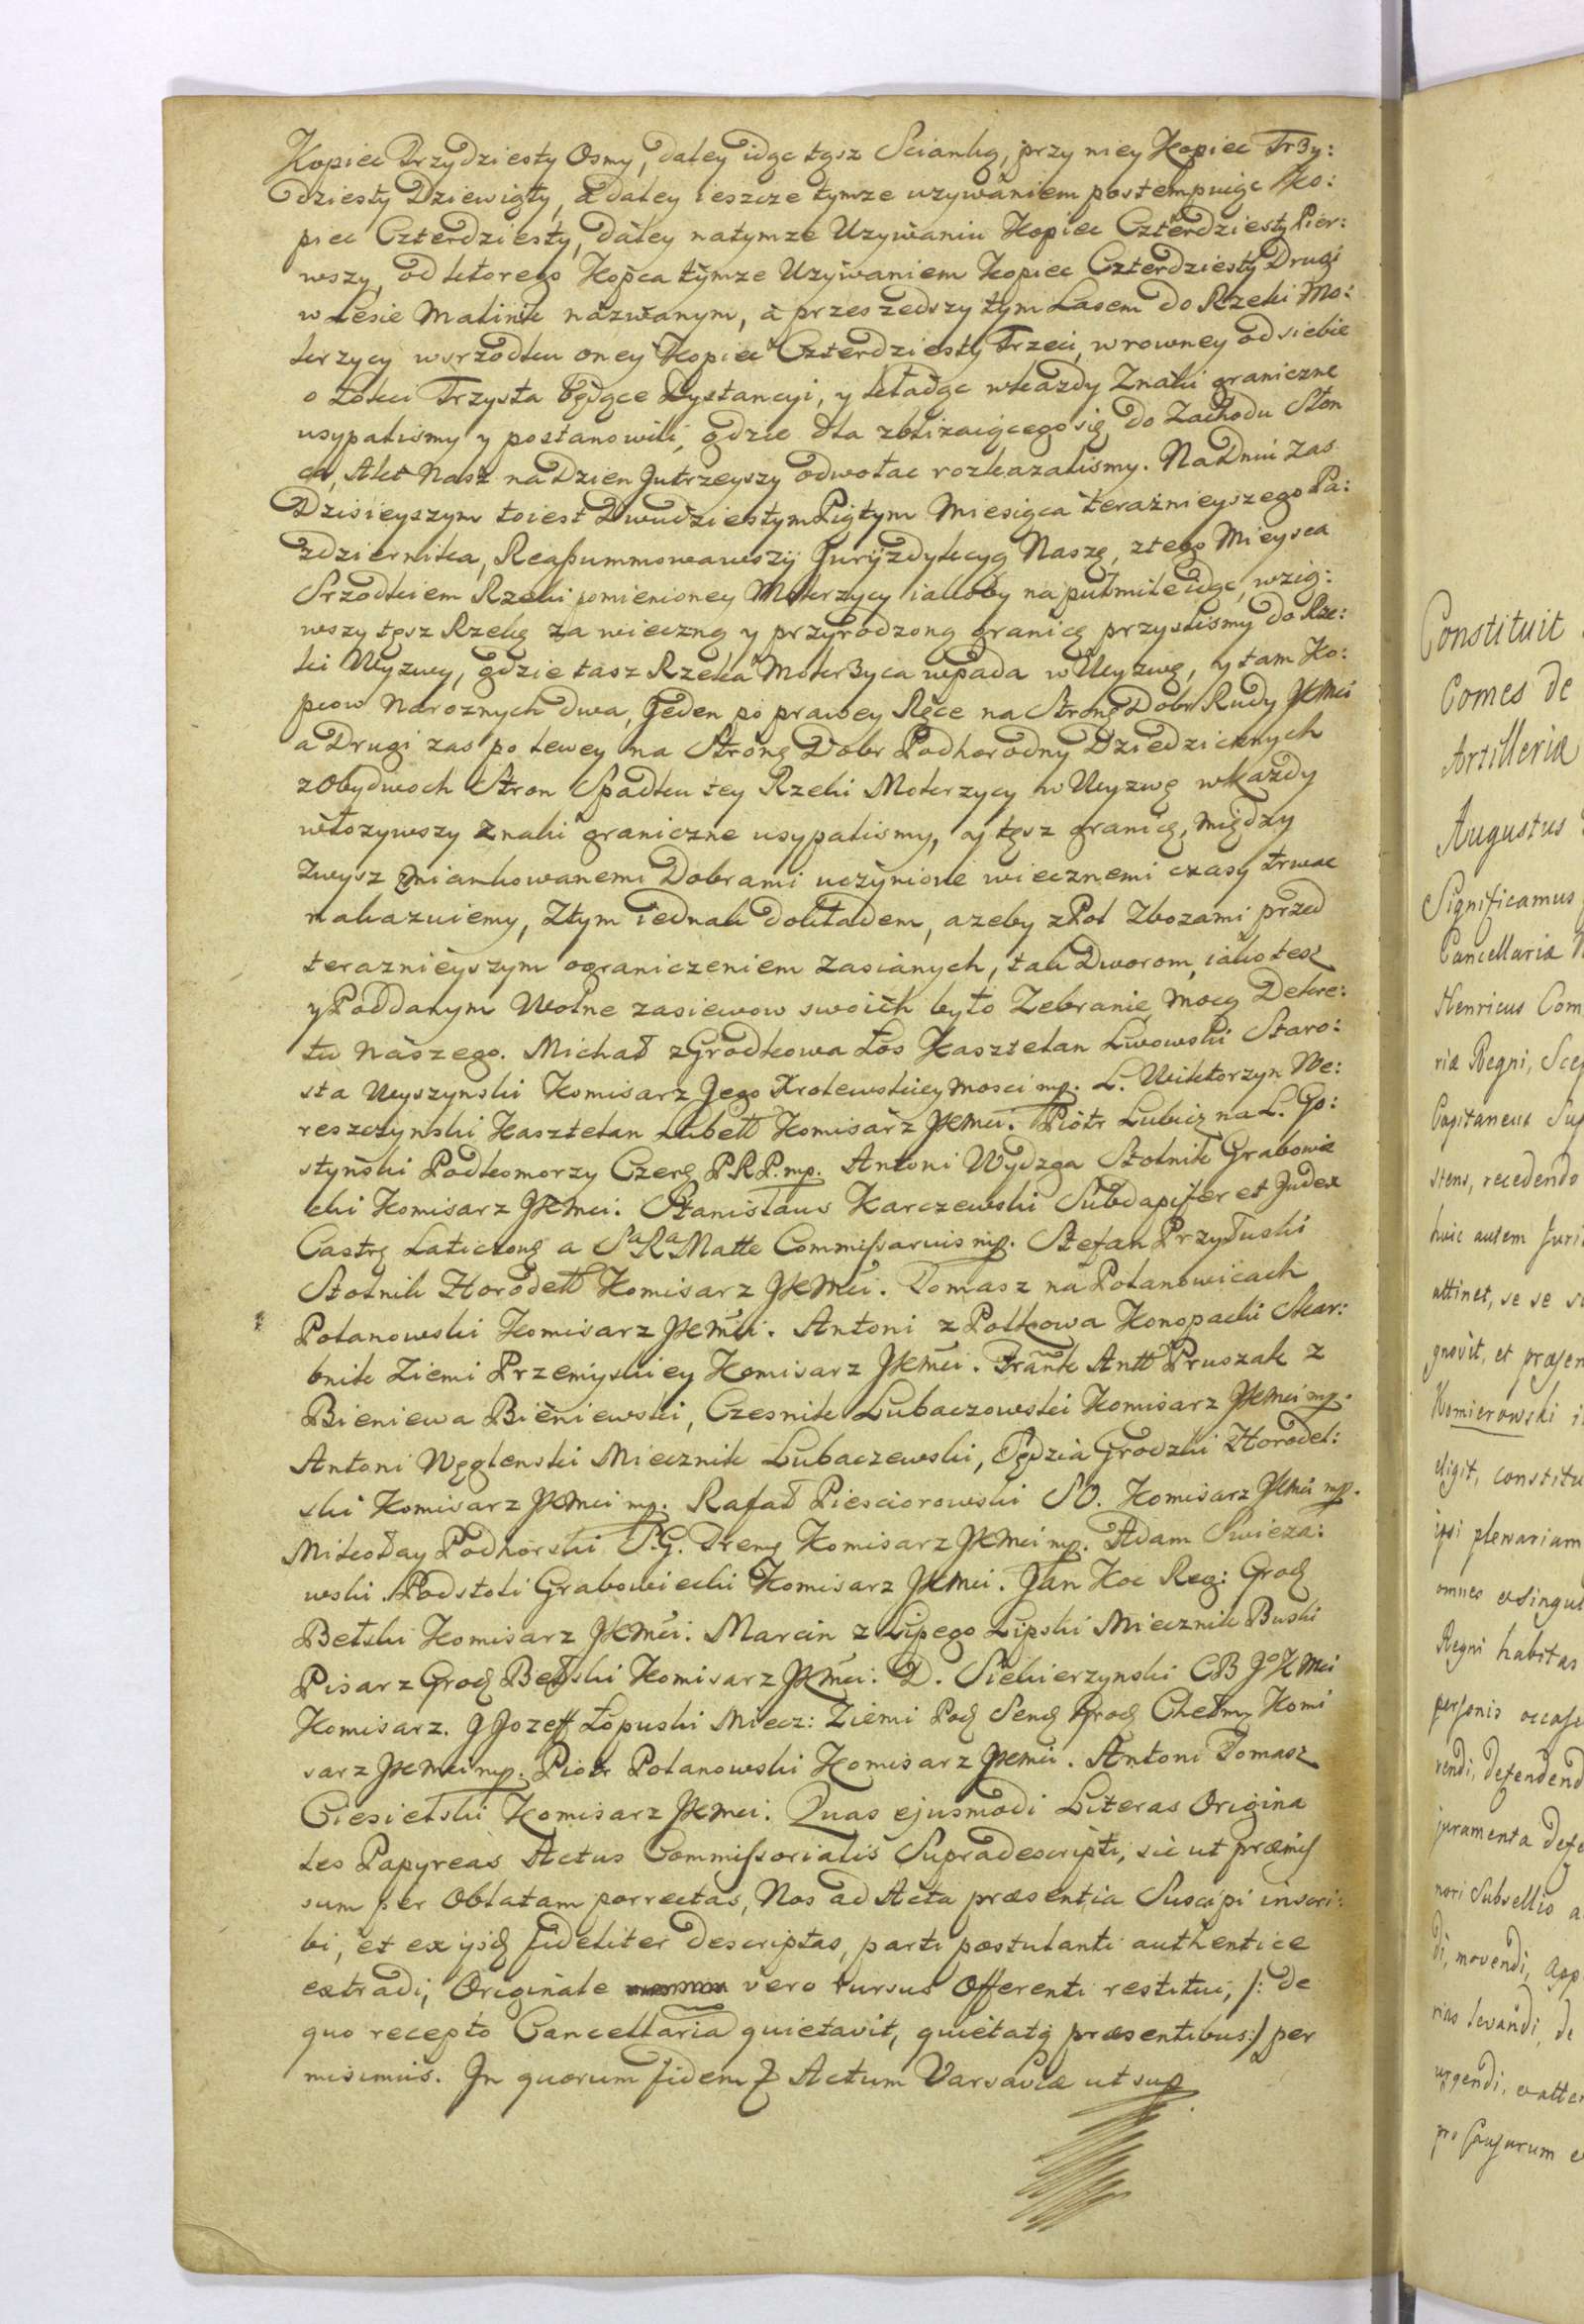 Kopiec Trzydziesty Osmy, daley idąc tąsz Scianką, przy niey Kopiec Trzy:
dziesty Dziewiąty, a daley ieszcze tymze uzywaniem postempuiąc Ko:
piec Czterdziesty, daley natymze Uzywaniu Kopiec Czterdziesty Pier:
wszy, od ktorego Kopca tymze Uzywaniem Kopiec Czterdziesty Drugi
w Lesie Malinik nazwanym, a przeszedszy tym Lasem do Rzeki Mo:
krzycy wsrzodku oney Kopiec Czterdziesty Trzeci, wrowney od siebie
o Łokci Trzysta będące Dystancyi, y kładąc wkazdy Znaki graniczne
usypalismy y postanowili, gdzie dla zblizaiącego się do Zachodu Słon
ca, Akt Nasz na Dzien Jutrzeyszy odwołac rozkazalismy. Na Dniu zas
Dzisieyszym toiest Dwudziestym Piątym Miesiąca teraznieyszego Pa:
zdziernika, Reassummowawszy Juryzdykcyą Naszę, ztego Mieysca
Srzodkiem Rzeki pomienioney Mokrzycy iakoby na pułmile idąc, wzią:
wszy tęsz Rzekę za wieczną y przyrodzoną granicę przyslismy do Rze:
ki Wyzwy, gdzie tasz Rzeka Mokrzyca wpada w Wyzwę, y tam Ko:
pcow Naroznych dwa, Jeden po prawey Ręce na Stronę Dobr Rudy JKMci
a Drugi zas po lewey na Stronę Dobr Podhorodny Dziedzicznych
zobydwoch Stron Spadku tey Rzeki Mokrzycy w Wyzwę wkazdy
włozywszy Znaki graniczne usypalismy, y tęsz granicę, między
Zwysz mianhowanemi Dobrami uczynione wiecznemi czasy trwac
nakazuiemy, Ztym iednak dokładem, azeby zPol Zbozami przed
teraznieyszym ograniczeniem zasianych, tak Dworom, iako tesz
y Poddanym Wolne zasiewow swoich było Zebranie, mocą Dekre:
tu naszego. Michał zGrodkowa Łos Kasztelan Lwowski Staro:
sta Wyszynski Komisarz Jego Krolewskiey Mosci mp. L. Wiktorzyn We:
reszczynski Kasztelan Lubell Komisarz JKMci. Piotr Lubicz na L. Go:
styński Podkomorzy Czerę PRP. mp. Antoni Wydzga Stolnik Grabowie
cki Komisarz JKMci. Stanislaus Karczewski Subdapifer et Judex
Castrę Laticzonę a Sa Ra Matte Commissarius mp. Stefan Przyłuski
Stolnik Horodell Komisarz JKMci. Tomasz na Polanowicach
Polanowski Komisarz JKMci. Antoni z Połkowa Konopacki Skar:
bnik Ziemi Przemyskiey Komisarz JKMci. Frank Antt Pruszak z
Bieniewa Bieniewski, Czesnik Lubaczowski Komisarz JKMci mp.
Antoni Węglenski Miecznik Lubaczewski, Sędzia Grodzki Horodel:
ski Komisarz JKMci mp. Rafał Piesciorowski SO. Komisarz JKMci mp.
Mikołay Podhorski P.G. Tremę Komisarz JKMci mp. Adam Swieza:
wski Podstoli Grabowiecki Komisarz JKMci. Jan Koc Reg: Grod
Bełski Komisarz JKMci. Marcin z Lipego Lipski Miecznik Buski
Pisarz Grod Bełski Komisarz JKMci. D. Siekierzynski CB Jo K Mci
Komisarz. J Jozeff Łopuski Miecz: Ziemi Pod Send Grod Chełm Komi
sarz JKMci mp. Piotr Polanowski Komisarz JKMci. Antoni Tomasz
Ciesielski Komisarz JKMci. Quas ejusmodi Literas Origina
les Papyreas Actus Commissorialis Supradescripti, sic ut præmis
sum per Oblatam porrectas, Nos ad Acta præsentia Suscipi inscri:
bi, et ex ijsq fideliter descriptas, parti postulanti authentice
extradi, Originale vero rursus Offerenti restitui, /: de
quo recepto Cancellaria quietavit, quietatq præsentibus:/ per
misimus. In quorum fidem Actum Varsaviæ ut sup
Constituit
Comes de
Artilleriæ
Augustus
Significamus
Cancellaria
Henricus Com
riæ Regni, Scep
Capitaneus Sup
stens, recedendo
huic autem Juri
attinet, se se
gnovit, et præsen
Komierowski
eligit, constitu
ipsi plenariam
omnes &singul
Regni habitas
personis occasi
rendi, defendend
juramenta defe
nori Subsellio a
di, movendi, app
rias levandi, de
urgendi,